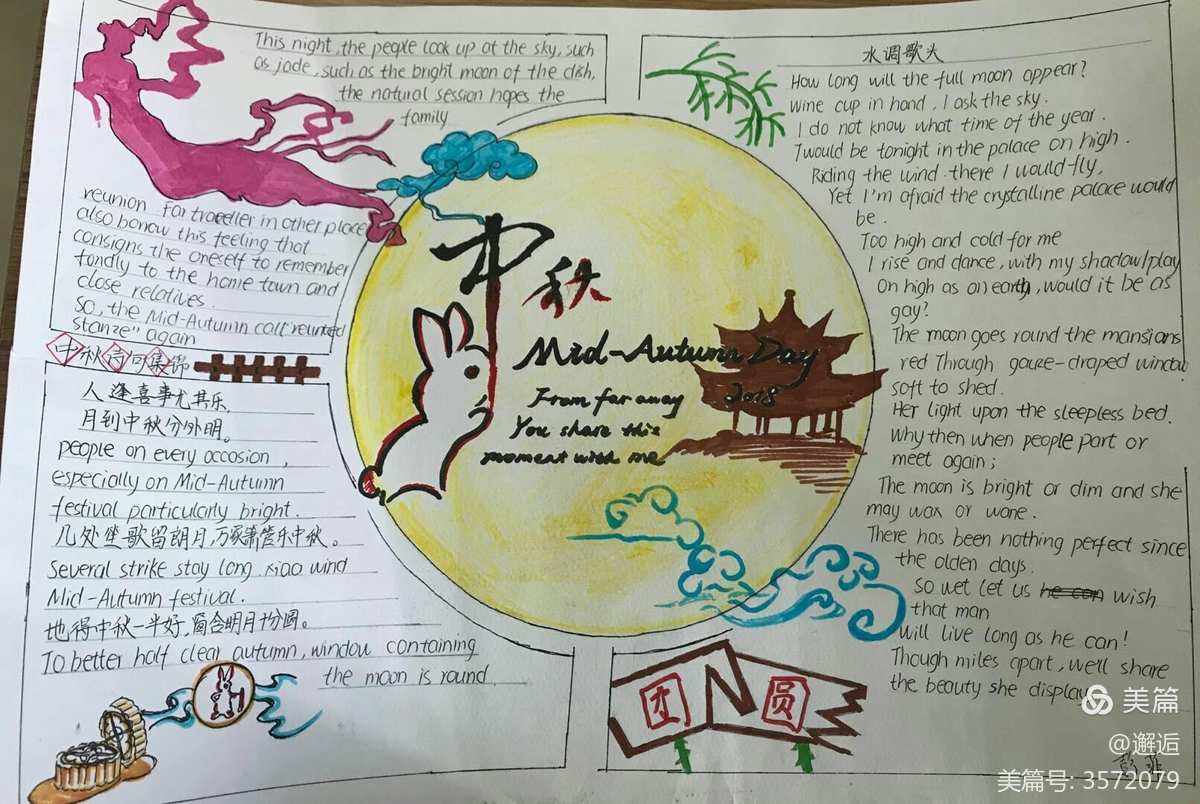 This night, the people look up at the sky, such
as jade, such as the bright moon of the dish,
the natural session hopes the
family
reunion far traveller in other place
also borrow this feeling that
consigns the oneself to remember
fondly to the home town and
close relatives.
So, the Mid-Autumn call "reunited
stanze" again
中秋诗词集锦
人逢喜事尤其乐,
月到中秋分外明。
people on every occosion,
especially on Mid-Autumn
festival particularly bright.
几处笙歌留朗月,万家箫管乐中秋。
Several strike stay long xiao wind
Mid-Autumn festival.
地得中秋一半好,窗含明月十分圆。
To better half clear autumn, window containing
the moon is round
中秋
Mid-Autumn Day
2018
From far away
You share this
moment with me
水调歌头
How long will the full moon appear?
wine cup in hand, I ask the sky.
I do not know what time of the year.
I would be tonight in the palace on high.
Riding the wind there I would fly,
Yet I'm afraid the crystalline palace would
be.
Too high and cold for me
I rise and dance, with my shadow I play
On high as on earth, would it be as
gay?
The moon goes round the mansions
red Through gauze-draped window
soft to shed.
Her light upon the sleepless bed.
Why then when people part or
meet again;
The moon is bright or dim and she
may wax or wane.
There has been nothing perfect since
the olden days.
So wet let us he can wish
that man
Will live long as he can!
Though miles apart, we'll share
the beauty she display
团圆
美篇
@邂逅
美篇号: 3572079